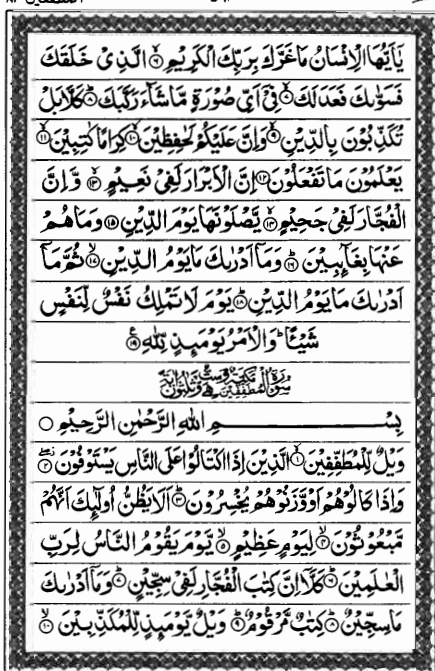 يٰۤاَيُّهَا الْاِنْسَانُ مَا غَرَّكَ بِرَبِّكَ الْكَرِيْمِ ۙ۶ الَّذِيْ خَلَقَكَ
فَسَوّٰىكَ فَعَدَلَكَ ۙ۷ فِيْۤ اَيِّ صُوْرَةٍ مَّا شَآءَ رَكَّبَكَ ؕ۸ كَلَّا بَلْ
تُكَذِّبُوْنَ بِالدِّيْنِ ۙ۹ وَاِنَّ عَلَيْكُمْ لَحٰفِظِيْنَ ۙ۱۰ كِرَامًا كٰتِبِيْنَ ۙ۱۱
يَعْلَمُوْنَ مَا تَفْعَلُوْنَ ۱۲ اِنَّ الْاَبْرَارَ لَفِيْ نَعِيْمٍ ۚ۱۳ وَّاِنَّ
الْفُجَّارَ لَفِيْ جَحِيْمٍ ۚ۱۴ يَّصْلَوْنَهَا يَوْمَ الدِّيْنِ ۱۵ وَمَا هُمْ
عَنْهَا بِغَآئِبِيْنَ ؕ۱۶ وَمَاۤ اَدْرٰىكَ مَا يَوْمُ الدِّيْنِ ۙ۱۷ ثُمَّ مَاۤ
اَدْرٰىكَ مَا يَوْمُ الدِّيْنِ ؕ۱۸ يَوْمَ لَا تَمْلِكُ نَفْسٌ لِّنَفْسٍ
شَيْـًٔا ؕ وَالْاَمْرُ يَوْمَئِذٍ لِّلّٰهِ ۱۹ ع
سُوْرَةُ الْمُطَفِّفِيْنَ مَكِّيَّةٌ وَّهِيَ سِتٌّ وَّثَلٰثُوْنَ اٰيَةً
بِسْمِ اللّٰهِ الرَّحْمٰنِ الرَّحِيْمِ
وَيْلٌ لِّلْمُطَفِّفِيْنَ ۙ۱ الَّذِيْنَ اِذَا اكْتَالُوْا عَلَى النَّاسِ يَسْتَوْفُوْنَ ۲
وَاِذَا كَالُوْهُمْ اَوْ وَّزَنُوْهُمْ يُخْسِرُوْنَ ؕ۳ اَلَا يَظُنُّ اُولٰٓئِكَ اَنَّهُمْ
مَّبْعُوْثُوْنَ ۙ۴ لِيَوْمٍ عَظِيْمٍ ۙ۵ يَّوْمَ يَقُوْمُ النَّاسُ لِرَبِّ
الْعٰلَمِيْنَ ؕ۶ كَلَّاۤ اِنَّ كِتٰبَ الْفُجَّارِ لَفِيْ سِجِّيْنٍ ؕ۷ وَمَاۤ اَدْرٰىكَ
مَا سِجِّيْنٌ ؕ۸ كِتٰبٌ مَّرْقُوْمٌ ؕ۹ وَيْلٌ يَّوْمَئِذٍ لِّلْمُكَذِّبِيْنَ ۙ۱۰